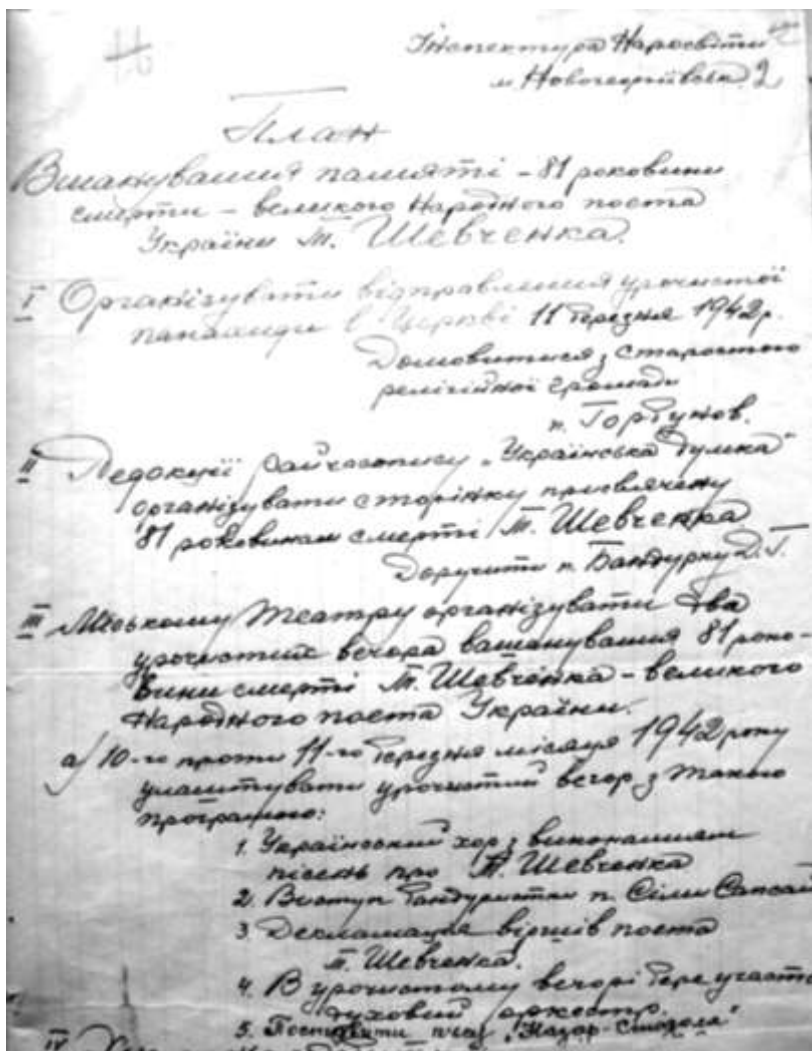 Інспектура Наросвіти
м. Новогеоргіївська 2
План
Вшанування памяті – 81 роковини
смерти – великого Народного поета
України Т. Шевченка.
I Організувати відправлення урочистої
панахиди в Церкві 11 березня 1942 р.
Домовитися з старостою
релігійної громади
п. Горбунов.
II Редакції райчасопису „Українська Думка"
організувати сторінку присвячену
81 роковинам смерті Т. Шевченка
Доручити п. Бандурку Д. Г.
III Міському Театру організувати два
урочистих вечора вашанування 81 роко-
вини смерті Т. Шевченка – великого
Народного поета України.
а) 10-го проти 11-го березня місяця 1942 року
улаштувати урочистий вечор з такою
програмою:
1. Український хор з виконанням
пісень про Т. Шевченка
2. Виступ бандуристки п. Сіли Сапсай
3. Декламація віршів поета
Т. Шевченка.
4. В урочистому вечорі бере участь
духовий оркестр.
5. Поставити пєсу „Назар-Стодоля"
IV